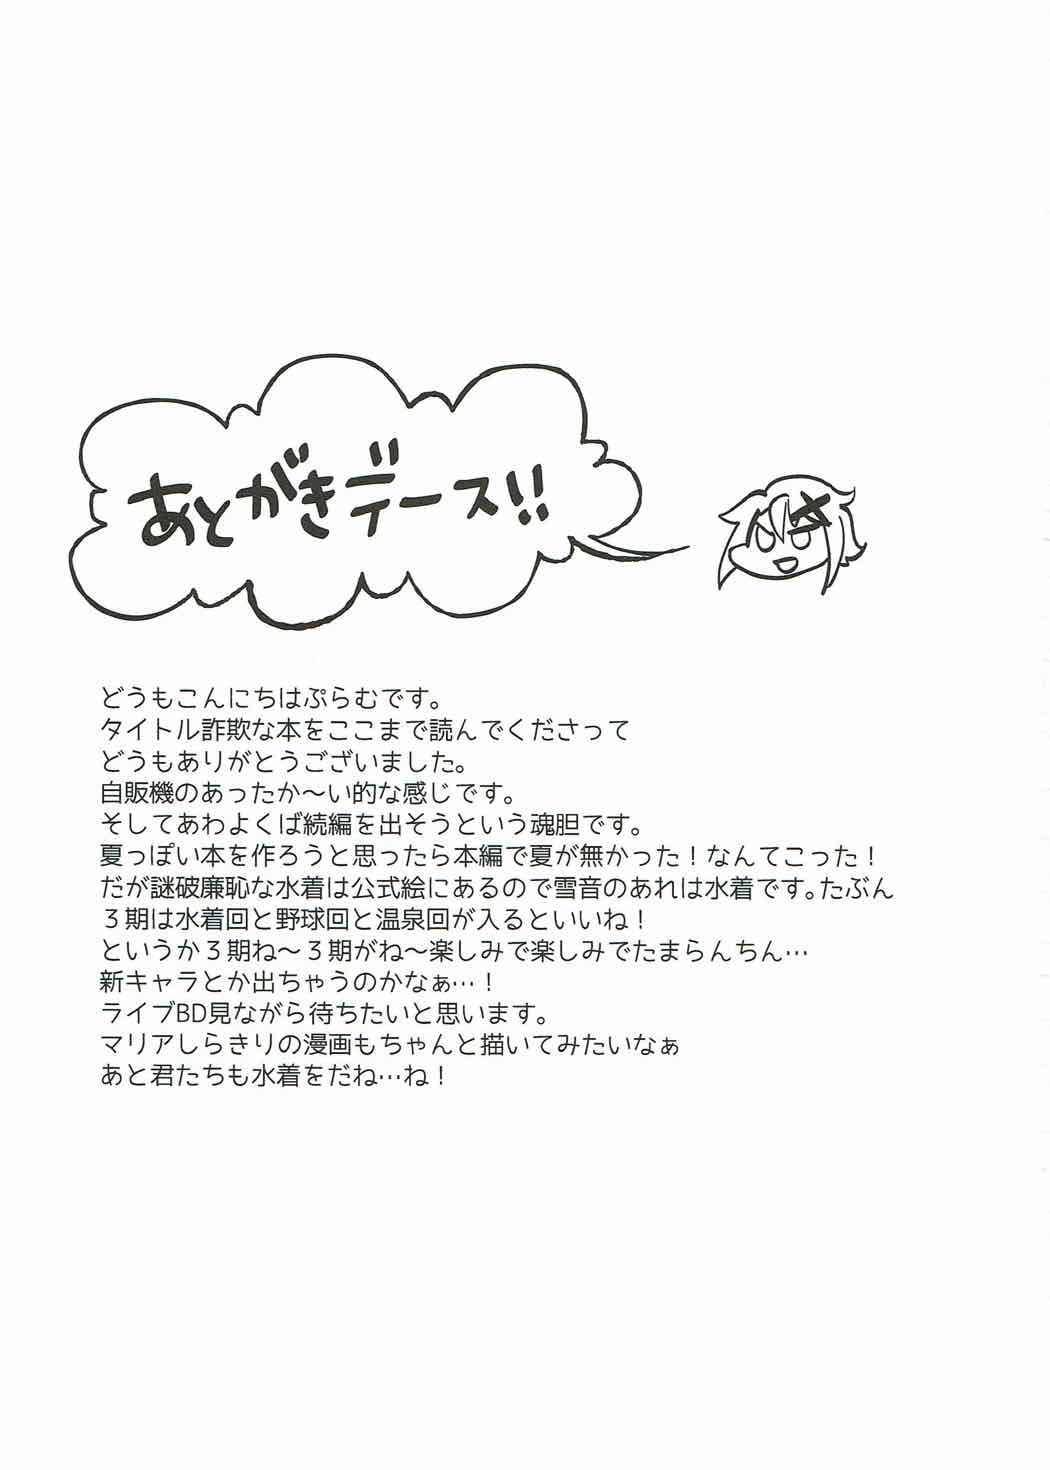 あとがきデース!!
どうもこんにちはぷらむです。
タイトル詐欺な本をここまで読んでくださって
どうもありがとうございました。
自販機のあったか～い的な感じです。
そしてあわよくば続編を出そうという魂胆です。
夏っぽい本を作ろうと思ったら本編で夏が無かった！なんてこった！
だが謎破廉恥な水着は公式絵にあるので雪音のあれは水着です。たぶん
３期は水着回と野球回と温泉回が入るといいね！
というか３期ね～３期がね～楽しみで楽しみでたまらんちん…
新キャラとか出ちゃうのかなぁ…！
ライブBD見ながら待ちたいと思います。
マリアしらきりの漫画もちゃんと描いてみたいなぁ
あと君たちも水着をだね…ね！